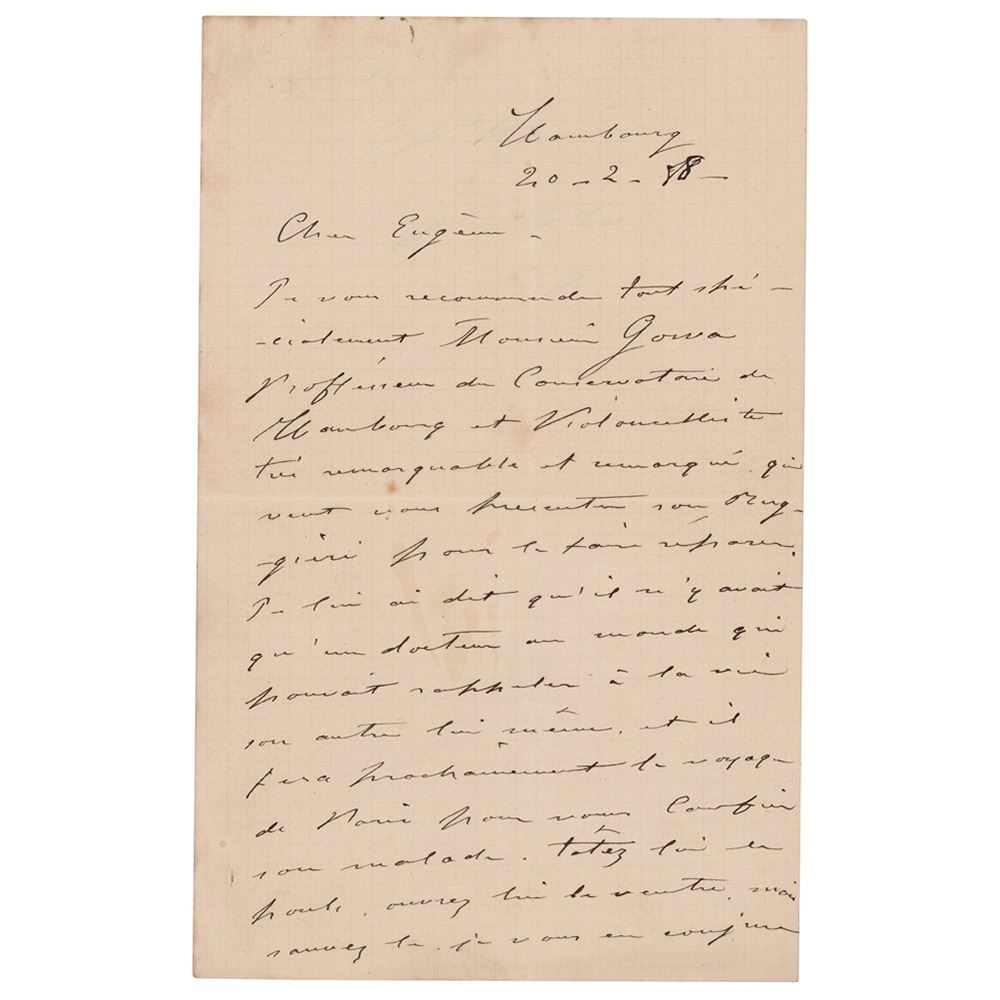 Hambourg
20 - 2 - 88 -
Cher Eugène -
Je vous recommande tout spé-
-cialement Monsieur Gowa
Proffésseur du Conservatoire de
Hambourg et Violoncelliste
très remarquable et remarqué, qui
veut vous présenter son Rug-
-gieri pour le faire réparer.
Je lui ai dit qu'il n'y avait
qu'un docteur au monde qui
pouvait rappeler à la vie
son autre lui même, et il
fera prochainement le voyage
de Paris pour vous confier
son malade. Tâtez lui le
pouls, ouvrez lui le ventre, mais
sauvez le, je vous en conjure